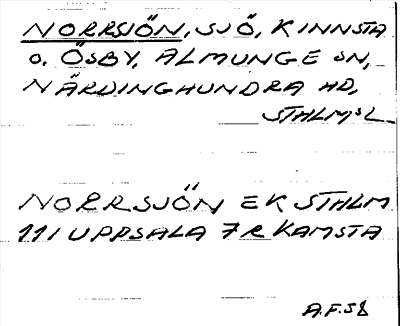 NORRSJÖN, SJÖ, KINNSTA
o. ÖSBY, ALMUNGE SN,
NÄRDINGHUNDRA HD,
STHLMS L
NORRSJÖN EK STHLM
111 UPPSALA 7R KAMSTA
A.F.58